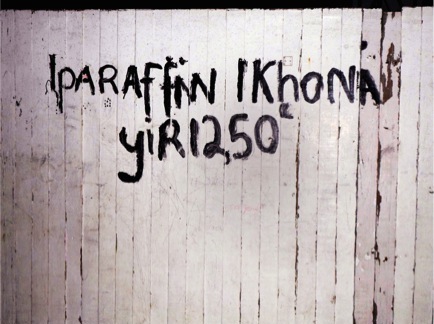 IPARAFFIN IKhONA
yiR12,50c